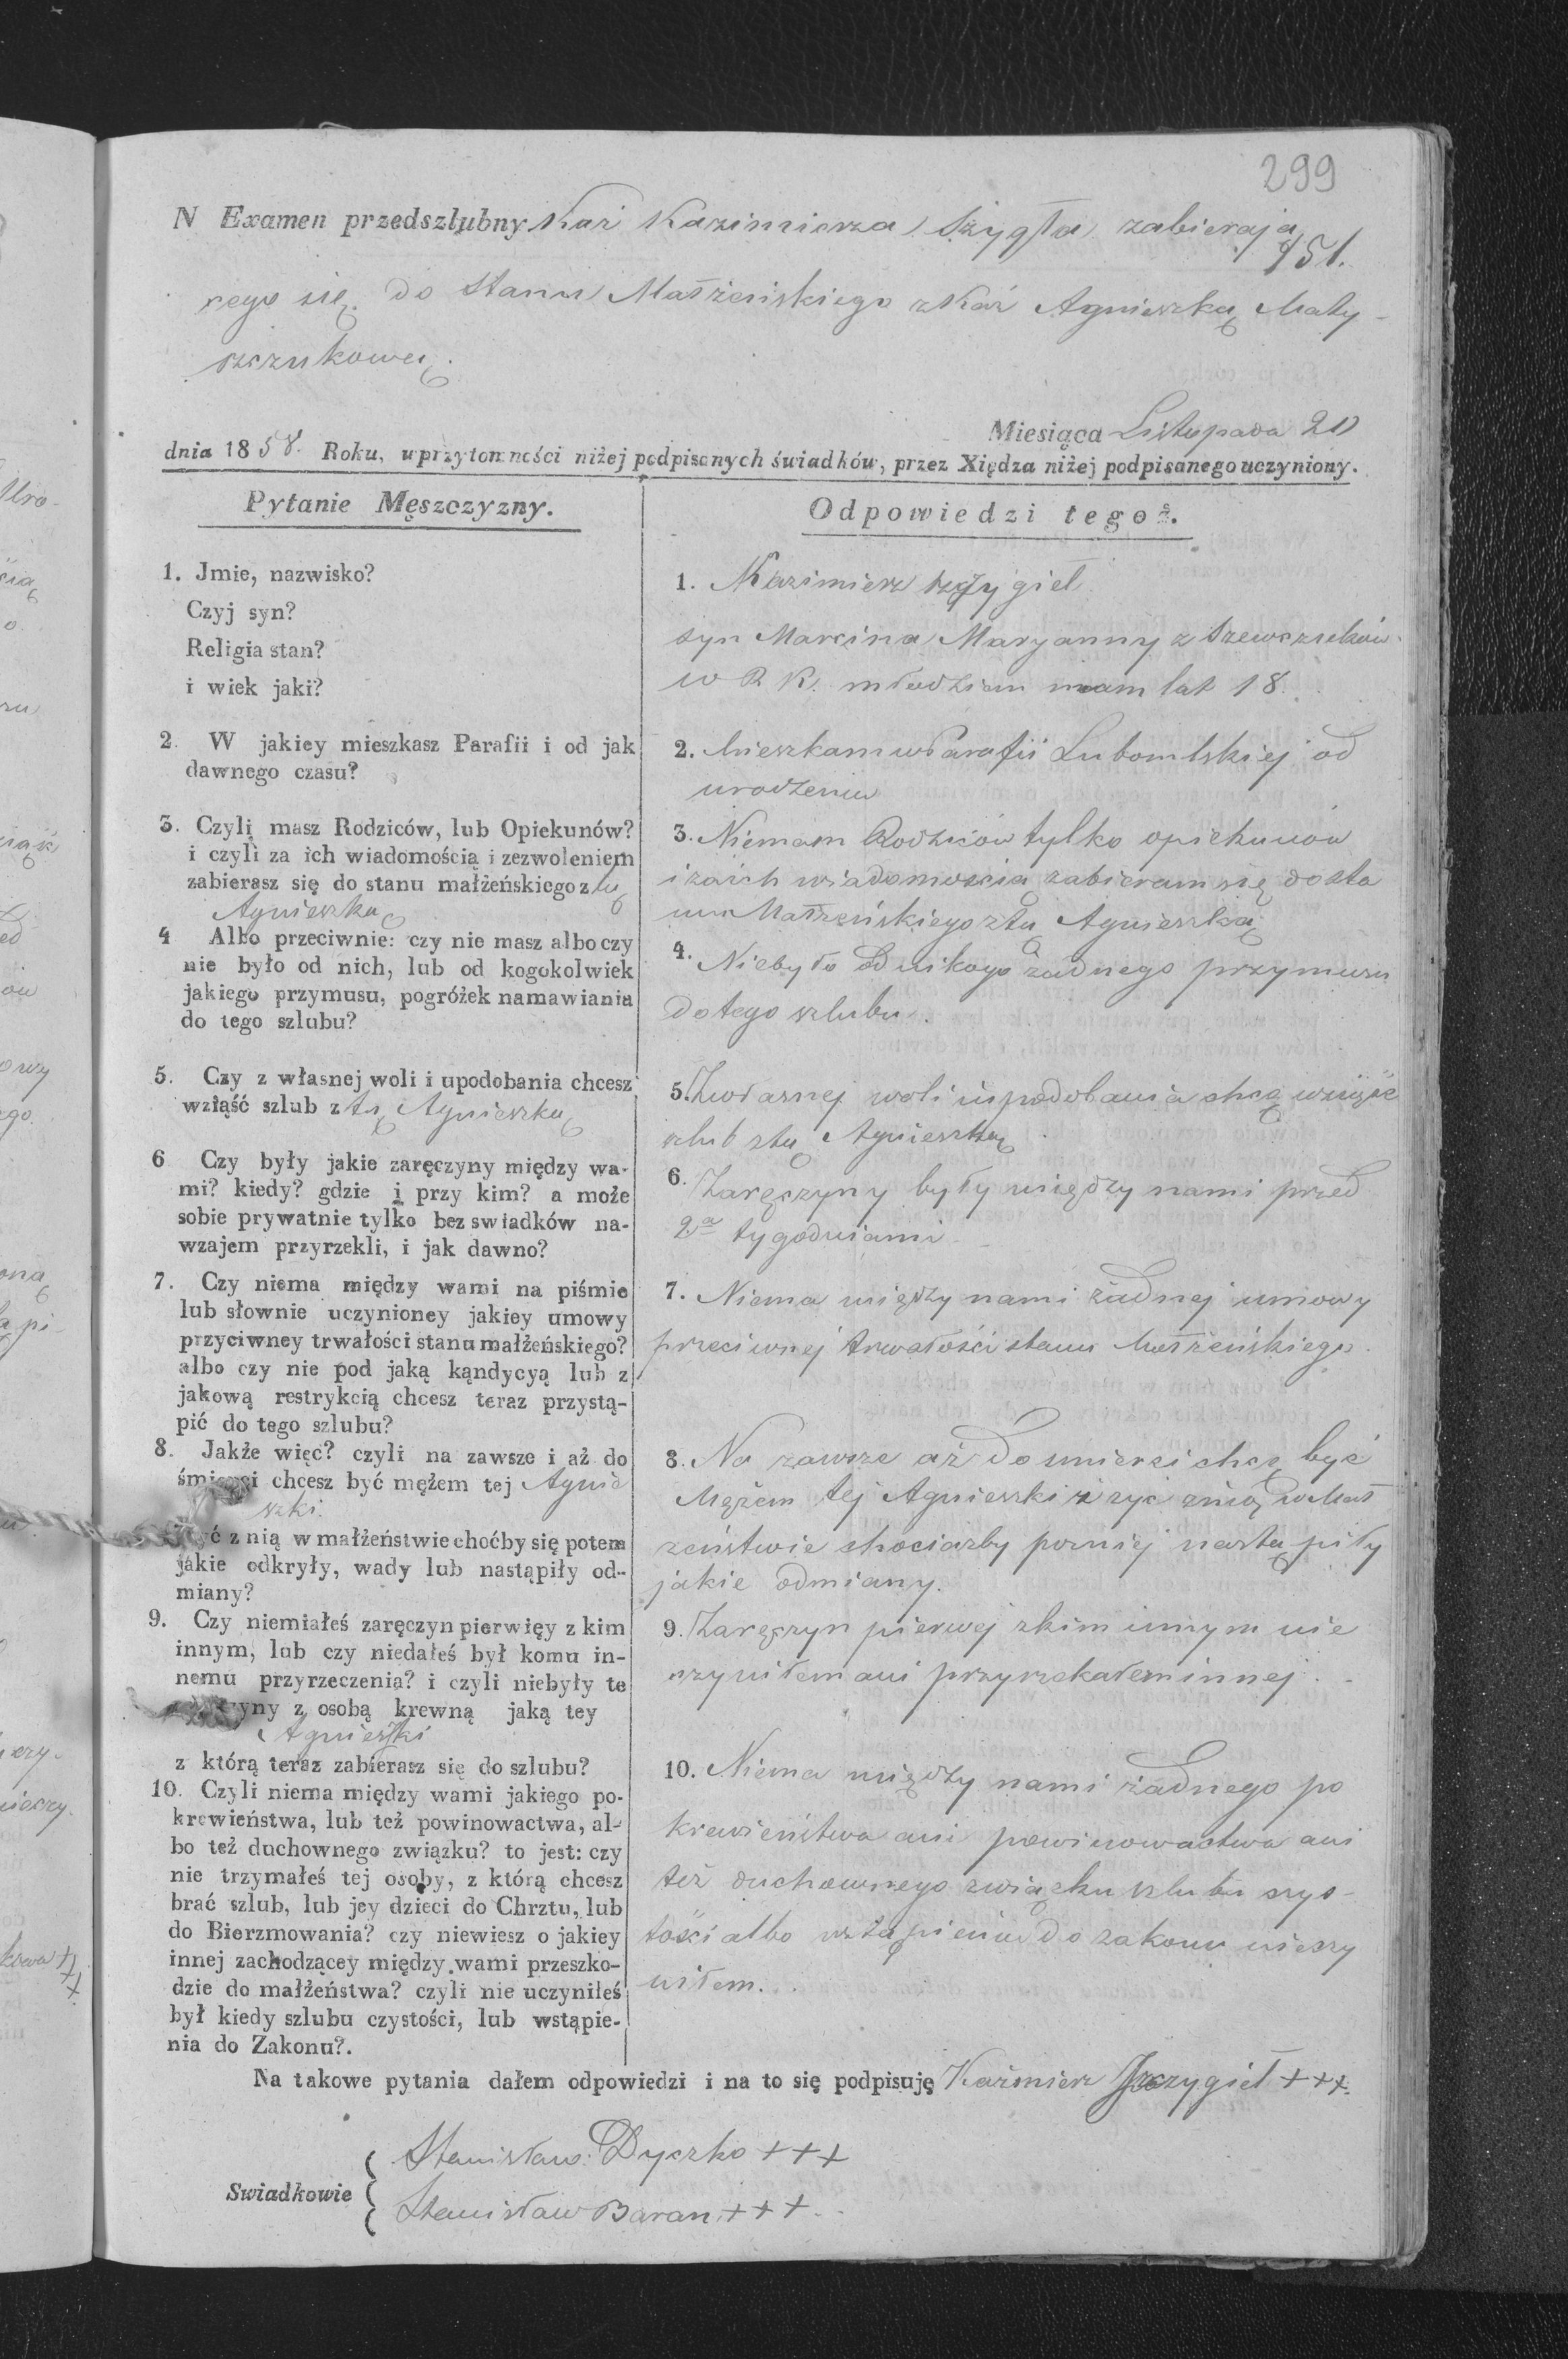 299
N Examen przedszlubny Kaź Kazimierza Szygła zabierają
151.
cego się do stanu Małżeńskiego z Kaź Agnieszką Maty-
szczukową.
Miesiąca Listopada 20
dnia 1858. Roku, w przytomności niżej podpisanych świadków, przez Xiędza niżej podpisanego uczyniony.
Pytanie Męszczyzny.
1. Jmie, nazwisko?
Czyj syn?
Religia stan?
i wiek jaki?
2. W jakiey mieszkasz Parafii i od jak
dawnego czasu?
3. Czyli masz Rodziców, lub Opiekunów?
i czyli za ich wiadomością i zezwoleniem
zabierasz się do stanu małżeńskiego z tą
Agnieszką
4 Albo przeciwnie: czy nie masz albo czy
nie było od nich, lub od kogokolwiek
jakiego przymusu, pogróżek namawiania
do tego szlubu?
5. Czy z własnej woli i upodobania chcesz
wziąść szlub z tą Agnieszką
6 Czy były jakie zaręczyny między wa-
mi? kiedy? gdzie i przy kim? a może
sobie prywatnie tylko bez swiadków na-
wzajem przyrzekli, i jak dawno?
7. Czy niema między wami na piśmie
lub słownie uczynioney jakiey umowy
przyciwney trwałości stanu małżeńskiego?
albo czy nie pod jaką kąndycyą lub z
jakową restrykcią chcesz teraz przystą-
pić do tego szlubu?
8. Jakże więc? czyli na zawsze i aż do
śmierci chcesz być mężem tej Agnie
szki
żyć z nią w małżeństwie choćby się potem
jakie odkryły, wady lub nastąpiły od-
miany?
9. Czy niemiałeś zaręczyn pierwięy z kim
innym, lub czy niedałeś był komu in-
nemu przyrzeczenia? i czyli niebyły te
zaręczyny z osobą krewną jaką tey
Agnieszki
z którą teraz zabierasz się do szlubu?
10. Czyli niema między wami jakiego po-
krewieństwa, lub też powinowactwa, al-
bo też duchownego związku? to jest: czy
nie trzymałeś tej osoby, z którą chcesz
brać szlub, lub jey dzieci do Chrztu, lub
do Bierzmowania? czy niewiesz o jakiey
innej zachodzącey między wami przeszko-
dzie do małżeństwa? czyli nie uczyniłeś
był kiedy szlubu czystości, lub wstąpie-
nia do Zakonu?.
Odpowiedzi tegoż.
1. Kazimierz Szczygieł
syn Marcina Maryanny z Szewczuków
w R K. młodzian mam lat 18.
2. Mieszkam w Parafii Lubomlskiej od
urodzenia
3. Niemam Rodziców tylko opiekunów
i za ich wiadomością zabieram się do sta
nu Małżeńskiego z tą Agnieszką
4. Niebyło od nikogo żadnego przymusu
do tego szlubu.
5. Z własnej woli i upodobania chcę wziąść
szlub z tą Agnieszką.
6. Zaręczyny były między nami przed
2a tygodniami
7. Niema między nami żadnej umowy
przeciwnej trwałości stanu Małżeńskiego.
8. Na zawsze aż do śmierci chcę być
Mężem tej Agnieszki i żyć z nią w Mał
żeństwie chociażby poźniej nastąpiły
jakie odmiany.
9. Zaręczyn pierwej z kim innym nie
czyniłem ani przyrzekałem innej.
10. Niema między nami żadnego po
krewieństwa ani powinowactwa ani
też duchownego związku szlubu czys-
tości albo wstąpienia do zakonu nieczy
niłem.
Na takowe pytania dałem odpowiedzi i na to się podpisuję Kaźmierz Szczygieł +++
Swiadkowie
Stanisław Dyczko +++
Stanisław Baran +++